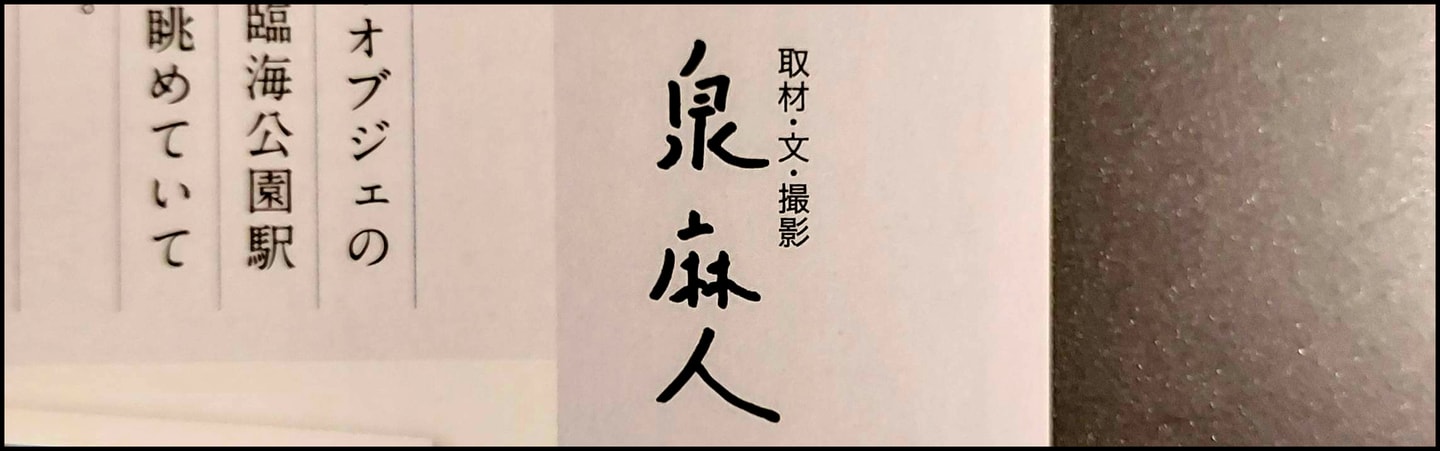 取材・文・撮影
泉麻人
オブジェの
臨海公園駅
眺めていて
。